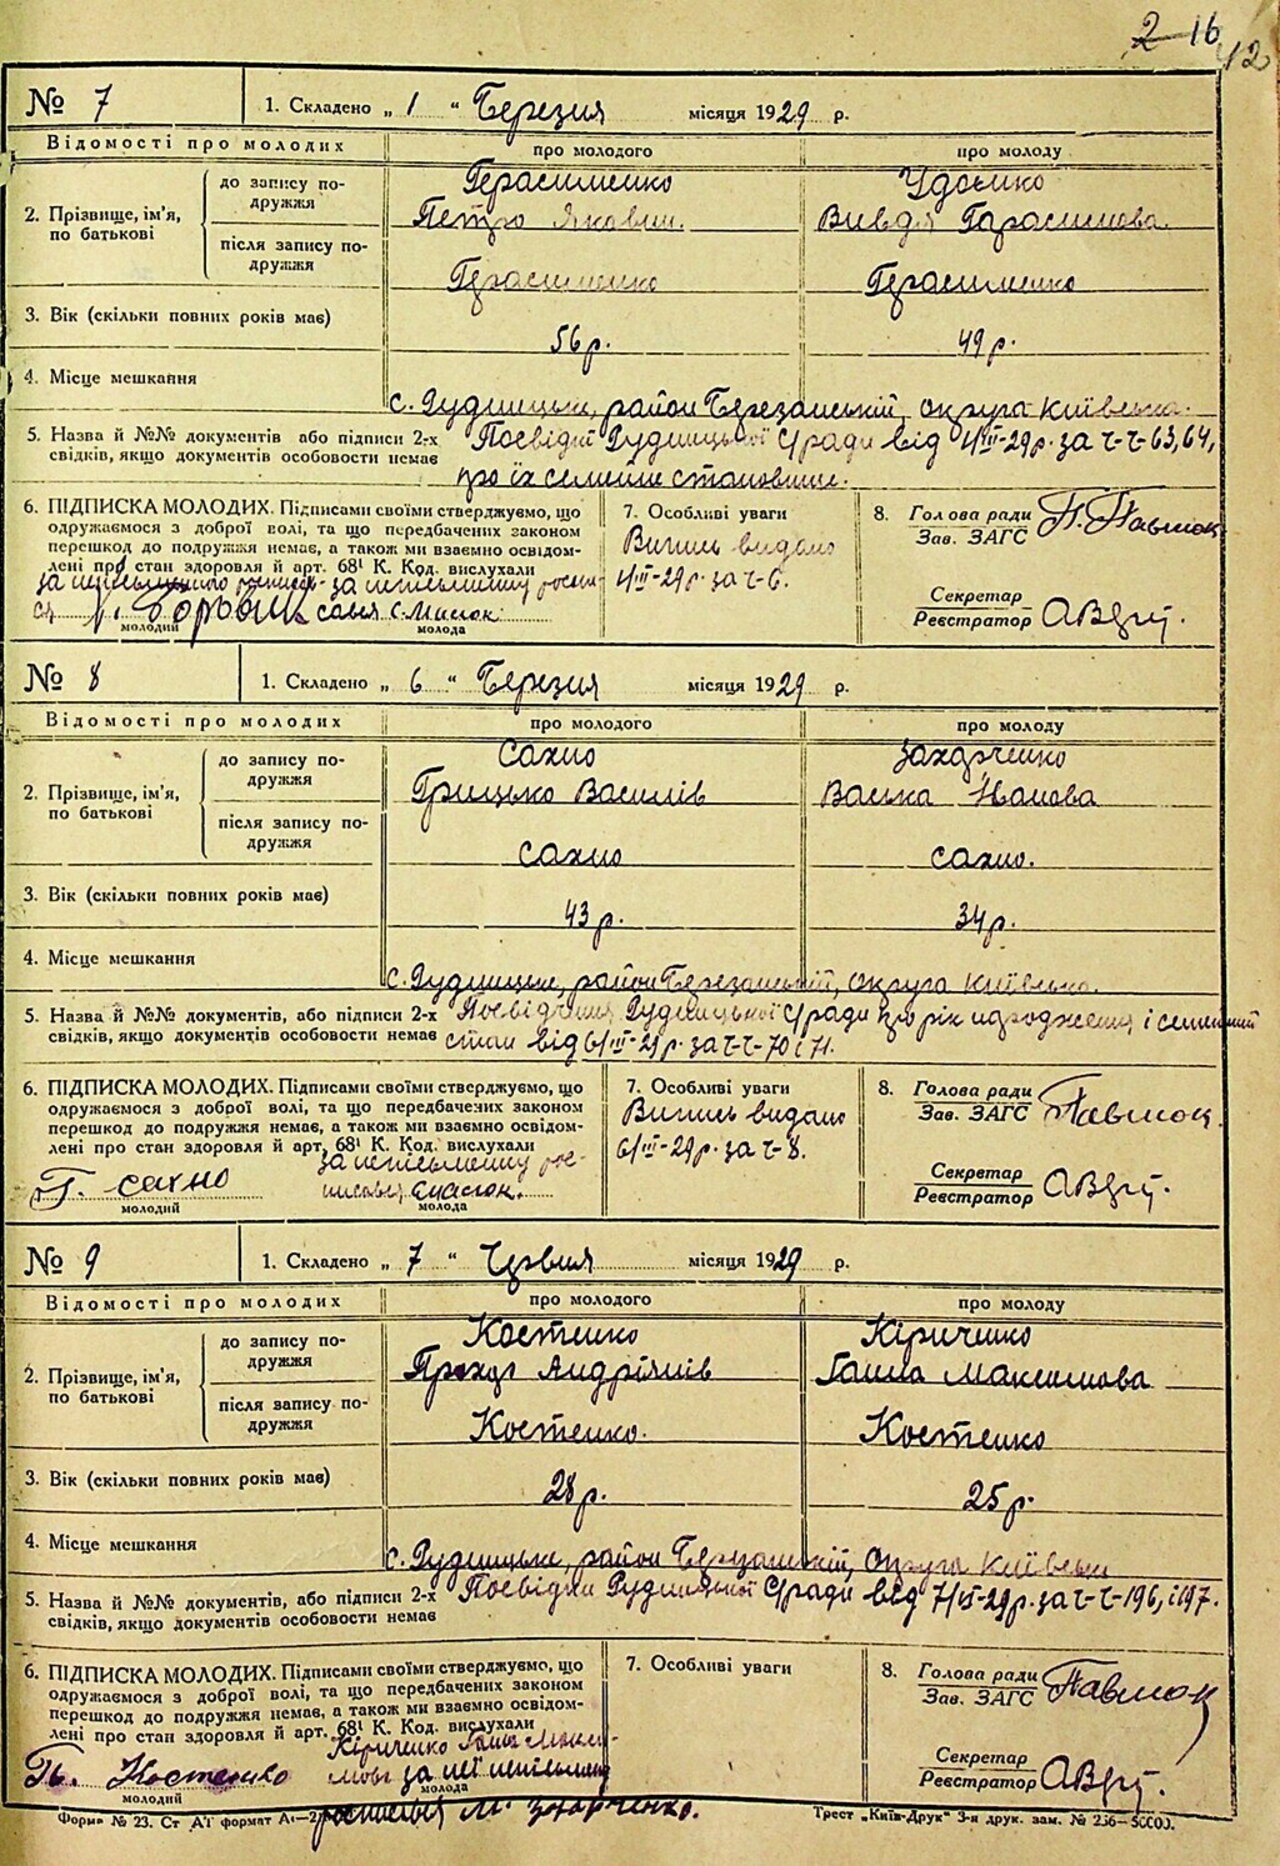 2 16
42
№ 7 1. Складено „ 1 “ Березня місяця 1929 р.
Відомості про молодих про молодого про молоду
2. Прізвище, ім’я, по батькові
до запису подружжя
Герасименко Удоенко
Петро Якович. Вивдя Гарасимова.
після запису подружжя
Герасименко Герасименко
3. Вік (скільки повних років має)
56 р. 49 р.
4. Місце мешкання
с. Рудницьке, район Березанський, округа Київська.
5. Назва й №№ документів або підписи 2-х Посвідки Рудницької С/ради від 1/III-29 р. за ч-ч-63, 64,
свідків, якщо документів особовости немає про їх семейне становище.
6. ПІДПИСКА МОЛОДИХ. Підписами своїми стверджуємо, що
одружаємося з доброї волі, та що передбачених законом
перешкод до подружжя немає, а також ми взаємно освідом-
лені про стан здоровля й арт. 68¹ К. Код. вислухали
за неписьменного за неписьменну
молодий молода
7. Особливі уваги
Випись видано
1/III-29 р. за ч-6.
8. Голова ради
Зав. ЗАГС
Секретар
Реєстратор
№ 8 1. Складено „ 6 “ Березня місяця 1929 р.
Відомості про молодих про молодого про молоду
2. Прізвище, ім’я, по батькові
до запису подружжя
Сахно Захарченко
Грицько Василів Васька Іванова
після запису подружжя
Сахно Сахно.
3. Вік (скільки повних років має)
43 р. 34 р.
4. Місце мешкання
с. Рудницьке, район Березанський, округа Київська.
5. Назва й №№ документів, або підписи 2-х Посвідчення Рудницької С/ради про рік народження і семейний
свідків, якщо документів особовости немає стан від 6/III-29 р. за ч-ч-70 і 71.
6. ПІДПИСКА МОЛОДИХ. Підписами своїми стверджуємо, що
одружаємося з доброї волі, та що передбачених законом
перешкод до подружжя немає, а також ми взаємно освідом-
лені про стан здоровля й арт. 68¹ К. Код. вислухали
за неписьменну рос-
Г. Сахно
молодий молода
7. Особливі уваги
Випись видано
6/III-29 р. за ч-8.
8. Голова ради
Зав. ЗАГС
Секретар
Реєстратор
№ 9 1. Складено „ 7 “ Червня місяця 1929 р.
Відомості про молодих про молодого про молоду
2. Прізвище, ім’я, по батькові
до запису подружжя
Костенко Кириченко
Прохор Андріянів Ганна Максимова
після запису подружжя
Костенко. Костенко
3. Вік (скільки повних років має)
28 р. 25 р.
4. Місце мешкання
с. Рудницьке, район Березанський, Округа Київська
5. Назва й №№ документів, або підписи 2-х Посвідки Рудницької С/ради від 7/VI-29 р. за ч-ч-196, і 197.
свідків, якщо документів особовости немає
6. ПІДПИСКА МОЛОДИХ. Підписами своїми стверджуємо, що
одружаємося з доброї волі, та що передбачених законом
перешкод до подружжя немає, а також ми взаємно освідом-
лені про стан здоровля й арт. 68¹ К. Код. вислухали
Кіриченко Ганна Макси-
Костенко мова за неї неписьменну
молодий молода
М. Захарченко.
7. Особливі уваги
8. Голова ради
Зав. ЗАГС
Секретар
Реєстратор
Форма № 23. Ст А1 формат А₁—2
Трест „Київ-Друк“ 3-я друк. зам. № 256—50000.